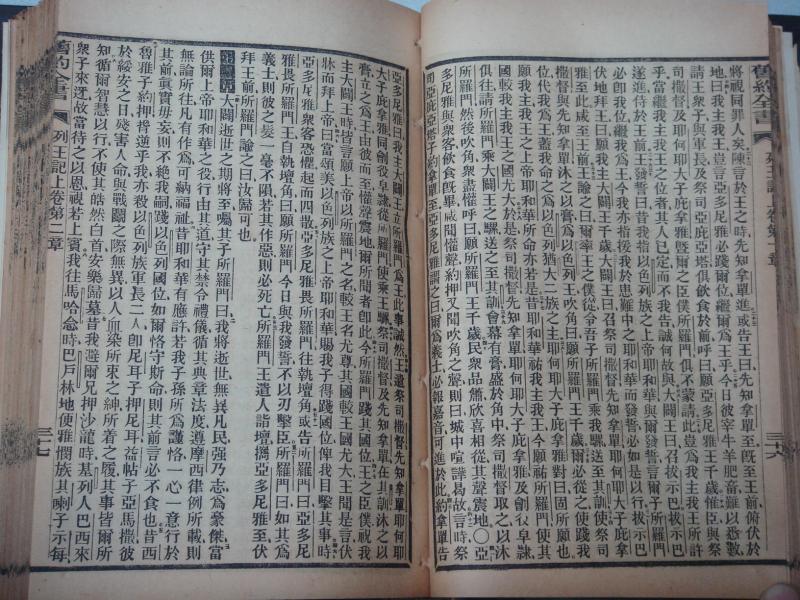 舊約全書 列王記上卷第一章 三十六
將視同罪人矣陳言於王之時先知拿單至或告王曰先知拿單至旣至王前俯伏於
地曰我主我王豈言亞多尼雅必踐爾位繼爾爲王乎今日彼宰牛羊肥畜難以悉數
請王衆子與軍長及祭司亞庇亞塔俱飲食於前呼曰願亞多尼雅王千歲惟臣與祭
司撒督及耶何耶大子庇拿雅曁爾之臣僕所羅門俱不蒙請此豈爲我主我王所許
乎當繼我主我王之位者其人已定而不我告誠何故與大闢王曰召拔示巴拔示巴
遂進侍於王前王發誓曰昔我指以色列族之上帝耶和華與爾發誓言爾子所羅門
必卽我位繼我爲王今我亦指援我於患難中之耶和華而發誓必如是以行拔示巴
伏地拜王曰願我主大闢王千歲大闢王曰召祭司撒督先知拿單耶何耶大子庇拿
雅至此咸至王前王諭之曰爾率王之僕從令吾子所羅門乘我騾送至其訓使祭司
撒督與先知拿單沐之以膏爲以色列王吹角曰願所羅門王千歲爾必從之使踐我
位代我爲王蓋我命之爲以色列猶大二族之主耶何耶大子庇拿雅對曰固所願也
願我主我王之上帝耶和華所命亦若是昔耶和華祐我主我王今願祐所羅門使其
國較我主我王之國尤大於是祭司撒督先知拿單耶何耶大子庇拿雅及劊役皁隷
俱往請所羅門乘大闢王之騾送之至其訓會幕有膏盛於角中祭司撒督取之以沐
所羅門然後吹角衆盡懽呼曰願所羅門王千歲民衆品簫欣喜相從其聲震地○亞
多尼雅與衆客飲食旣畢咸聞懽聲約押又聞吹角之聲則曰城中喧譁曷故言時祭
司亞庇亞塔子約拿單至亞多尼雅謂之曰爾爲義士必報嘉音可進於此約拿單告
亞多尼雅曰我主大闢王立所羅門爲王此事誠然王遣祭司撒督先知拿單耶何耶
大子庇拿雅同劊役皁隷從所羅門使乘王騾祭司撒督及先知拿單在其訓沐之以
膏立之爲王由彼而至懽聲震地爾所聞者卽此今所羅門踐其國位王之臣僕祝我
主大闢王時皆言願上帝以所羅門之名較王名尤尊其國較王國尤大王聞是言伏
牀而拜上帝曰當頌美以色列族之上帝耶和華賜我子得踐國位俾我目擊其事時
亞多尼雅衆客恐懼起而四散亞多尼雅畏所羅門往執壇角或告所羅門曰亞多尼
雅畏所羅門王自執壇角曰願所羅門今日與我發誓不以刃擊臣所羅門曰如其爲
義士則彼之髮一毫不隕若其作惡則必死亡所羅門王遣人詣壇攜亞多尼雅至伏
拜王前所羅門諭之曰汝歸可也
大闢逝世之期將至囑其子所羅門曰我將逝世無異凡民强乃志爲豪傑當
供爾上帝耶和華之役行由其道守其禁令禮儀循其典章法度遵摩西律例所載則
無論所往凡有作爲可納福祉昔耶和華有應許若我子孫所爲謹恪一心一意行於
其前眞實毋妄則不絶我嗣踐以色列國位如爾恪守斯命則其前言必不食也昔西
魯雅子約押嘗逆乎我亦殺以色列族軍長二人卽尼耳子押尼耳益帖子亞馬撒彼
於綏安之日殘害人命與戰鬬之際無異以人血染所束之紳所着之履其事皆爾所
知循爾智慧以行不使其皓然白首安樂歸墓昔我避爾兄押沙龍時基列人巴西來
衆子來迓故當待之以恩視若上賓我往馬哈念時巴戶林地便雅憫族其喇子示每
舊約全書 列王記上卷第二章 三十七